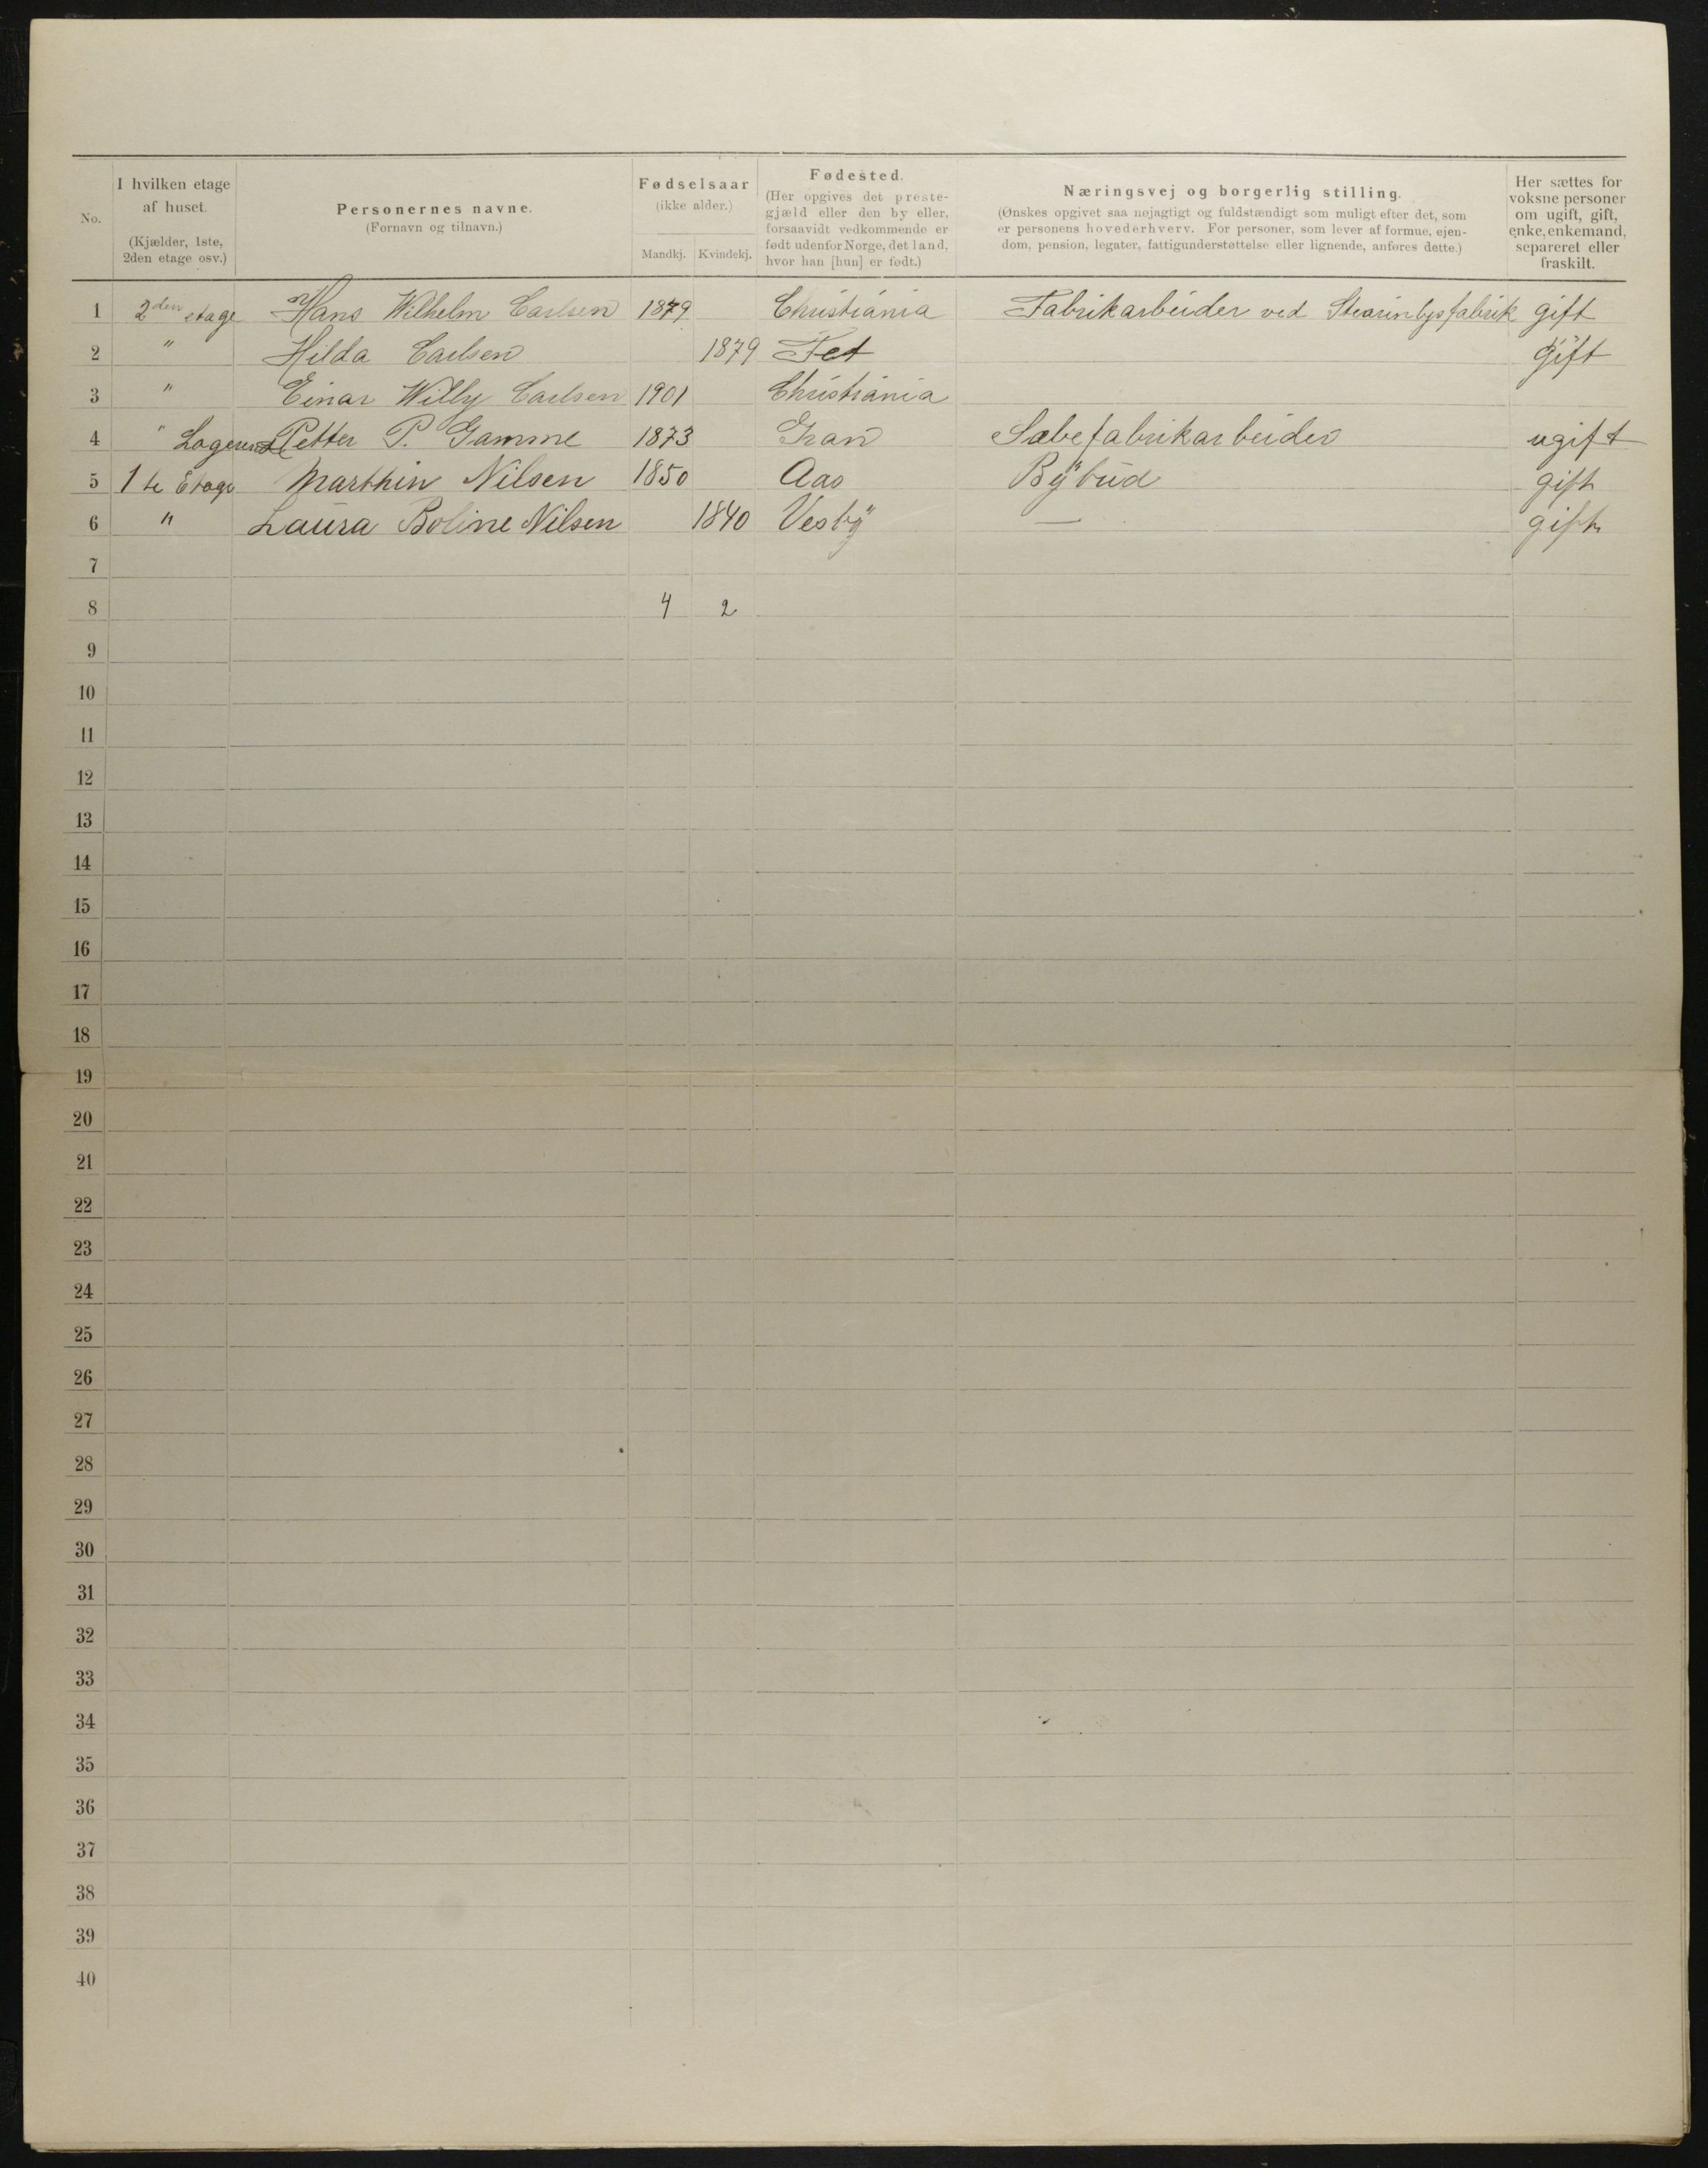 No.
I hvilken etage
af huset.
(Kjælder, 1ste,
2den etage osv.)
Personernes navne.
(Fornavn og tilnavn.)
Fødselsaar
(ikke alder.)
Mandkj. Kvindekj.
Fødested.
(Her opgives det preste-
gjæld eller den by eller,
forsaavidt vedkommende er
født udenfor Norge, det land,
hvor han [hun] er født.)
Næringsvej og borgerlig stilling.
(Ønskes opgivet saa nøjagtigt og fuldstændigt som muligt efter det, som
er personens hovederhverv. For personer, som lever af formue, ejen-
dom, pension, legater, fattigunderstøttelse eller lignende, anføres dette.)
Her sættes for
voksne personer
om ugift, gift,
enke, enkemand,
separeret eller
fraskilt.
1 2den etage Hans Wilhelm Carlsen 1879 Christiania Fabrikarbeider ved Stearinlysfabrik gift
2 " Hilda Carlsen 1879 Fet gift
3 " Einar Willy Carlsen 1901 Christiania
4 " Petter P. Gamme 1873 Gran Sæbefabrikarbeider ugift
5 1te Etage Marthin Nilsen 1850 Aas Bybud gift
6 " Laura Boline Nilsen 1840 Vesby — gift
7
8 4 2
9
10
11
12
13
14
15
16
17
18
19
20
21
22
23
24
25
26
27
28
29
30
31
32
33
34
35
36
37
38
39
40